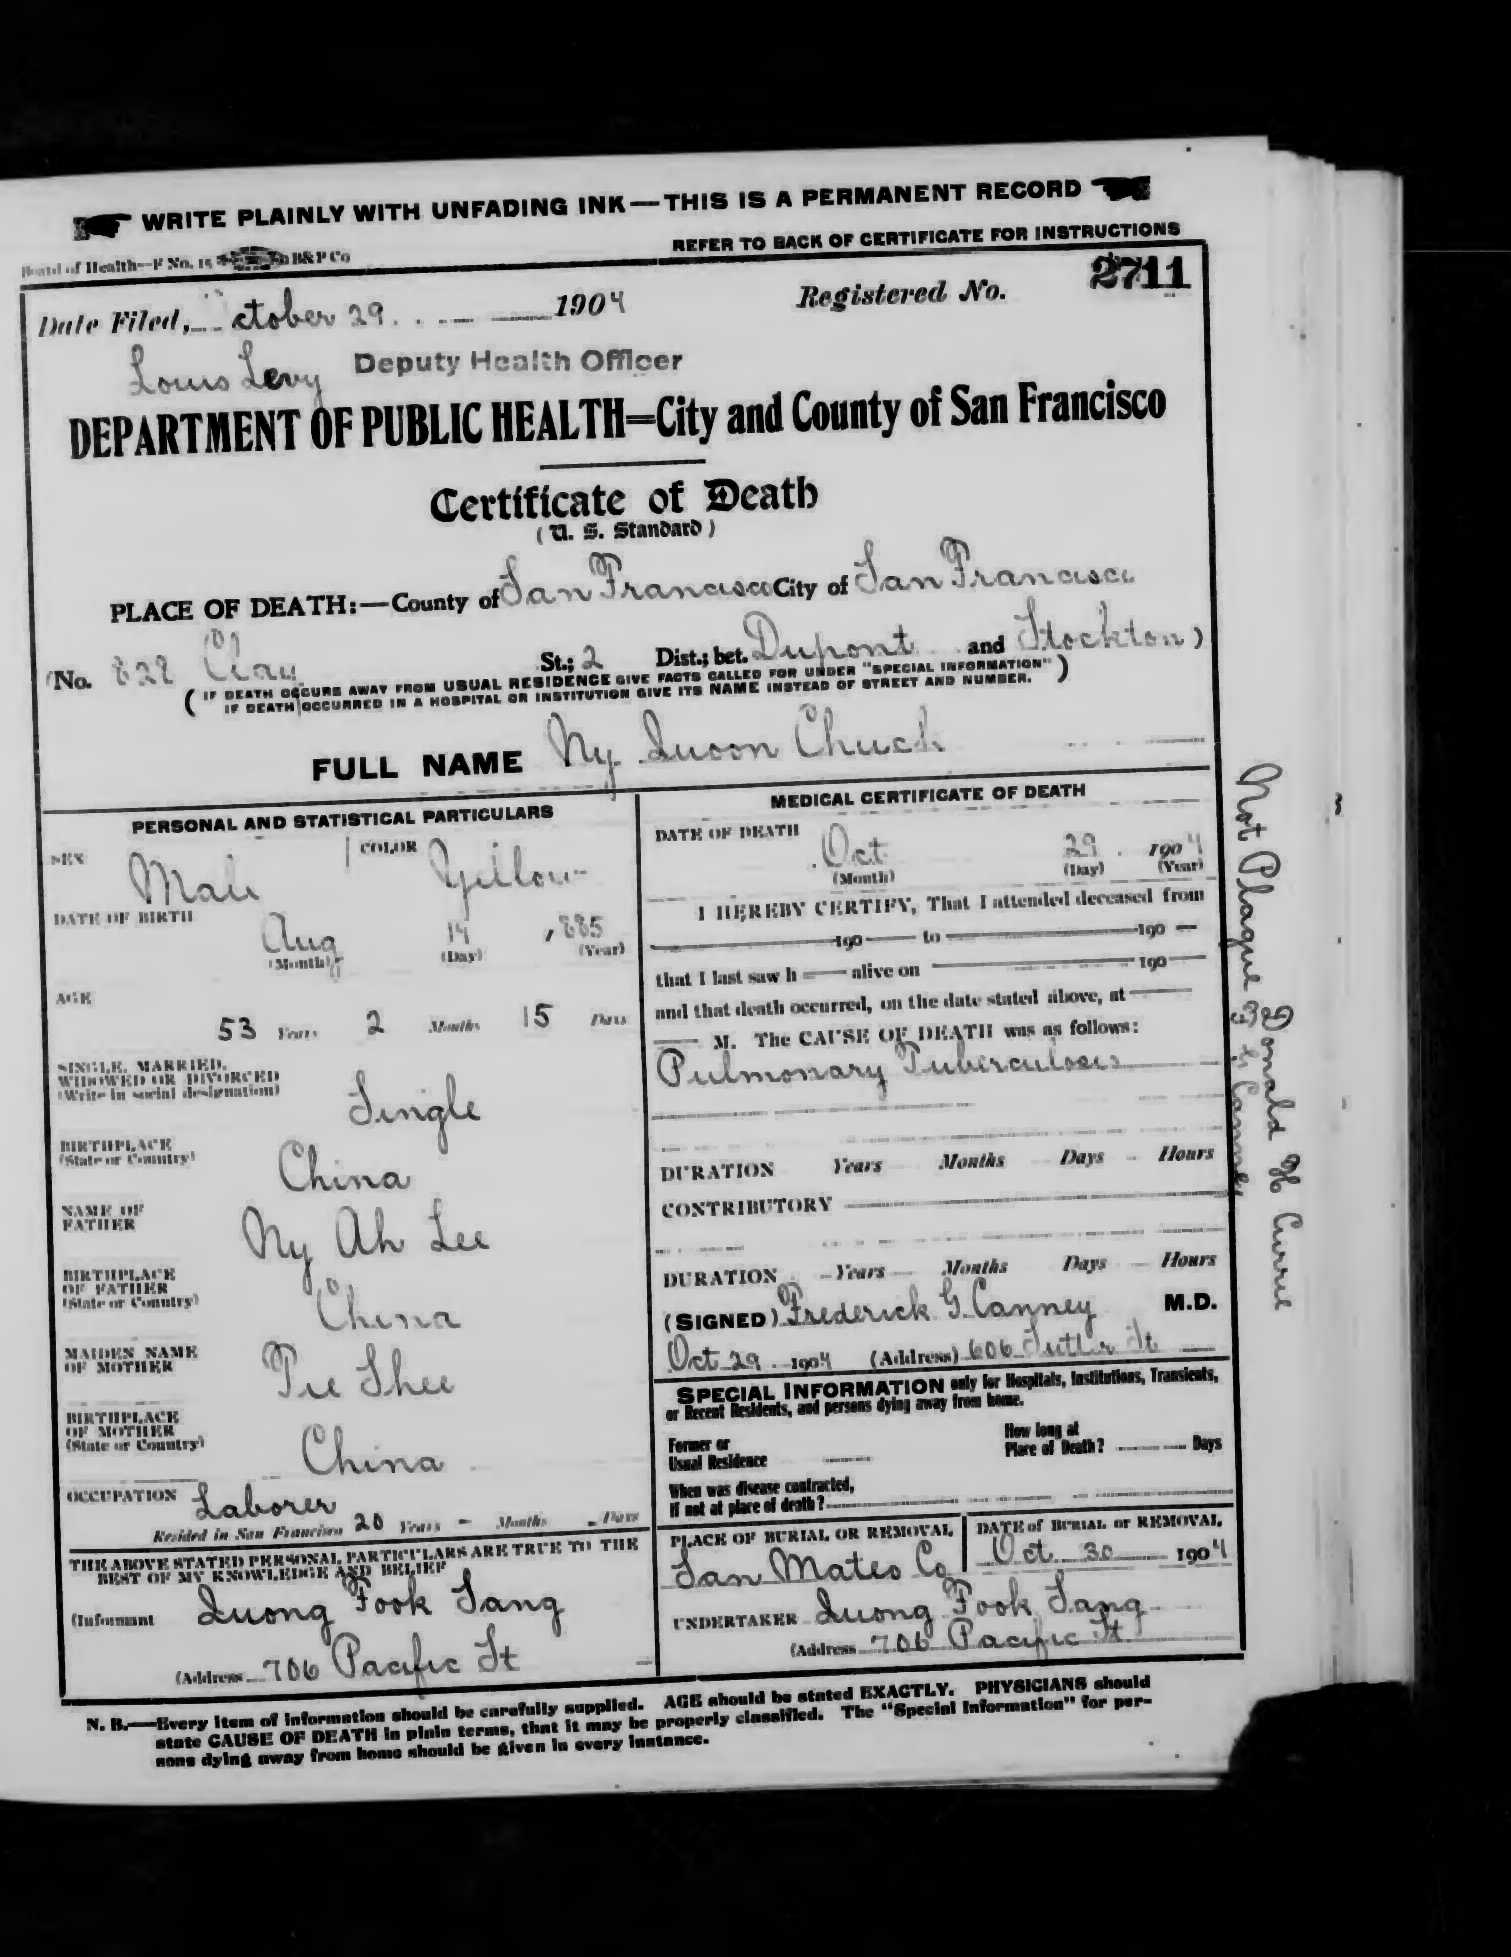 WRITE PLAINLY WITH UNFADING INK—THIS IS A PERMANENT RECORD
REFER TO BACK OF CERTIFICATE FOR INSTRUCTIONS
Board of Health—F No. 15 B&P Co
Date Filed, October 29 1904
Registered No. 2711
Louis Levy Deputy Health Officer
DEPARTMENT OF PUBLIC HEALTH=City and County of San Francisco
Certificate of Death
(U. S. Standard)
PLACE OF DEATH:—County of San Francisco City of San Francisco
(No. 828 Clay St.; 2 Dist.; bet. Dupont and Stockton)
(IF DEATH OCCURS AWAY FROM USUAL RESIDENCE GIVE FACTS CALLED FOR UNDER "SPECIAL INFORMATION"
IF DEATH OCCURRED IN A HOSPITAL OR INSTITUTION GIVE ITS NAME INSTEAD OF STREET AND NUMBER.)
FULL NAME Ny Quoon Chuck
PERSONAL AND STATISTICAL PARTICULARS
SEX Male COLOR Yellow
DATE OF BIRTH
Aug 14, 885
(Month) (Day) (Year)
AGE
53 Years 2 Months 15 Days
SINGLE, MARRIED,
WIDOWED OR DIVORCED
(Write in social designation)
Single
BIRTHPLACE
(State or Country)
China
NAME OF
FATHER
Ny Ah Lee
BIRTHPLACE
OF FATHER
(State or Country)
China
MAIDEN NAME
OF MOTHER
Shee
BIRTHPLACE
OF MOTHER
(State or Country)
China
OCCUPATION Laborer
Resided in San Francisco 20 Years - Months - Days
THE ABOVE STATED PERSONAL PARTICULARS ARE TRUE TO THE
BEST OF MY KNOWLEDGE AND BELIEF
(Informant Quong Fook Tang
(Address 706 Pacific St
MEDICAL CERTIFICATE OF DEATH
DATE OF DEATH
Oct 29 1904
(Month) (Day) (Year)
I HEREBY CERTIFY, That I attended deceased from
190 to 190
that I last saw h alive on 190
and that death occurred, on the date stated above, at
M. The CAUSE OF DEATH was as follows:
Pulmonary Tuberculosis
DURATION Years Months Days Hours
CONTRIBUTORY
DURATION Years Months Days Hours
(SIGNED) Frederick G. Canney M.D.
Oct 29 1904 (Address) 606 Sutter St
SPECIAL INFORMATION only for Hospitals, Institutions, Transients,
or Recent Residents, and persons dying away from home.
Former or
Usual Residence
How long at
Place of Death? Days
When was disease contracted,
If not at place of death?
PLACE OF BURIAL OR REMOVAL
San Mateo Co
DATE of BURIAL or REMOVAL
Oct 30 1904
UNDERTAKER Quong Fook Tang
(Address 706 Pacific St
N. B.—Every item of information should be carefully supplied. AGE should be stated EXACTLY. PHYSICIANS should
state CAUSE OF DEATH in plain terms, that it may be properly classified. The "Special Information" for per-
sons dying away from home should be given in every instance.
Not Plague
Donald H Currie
F G Canney